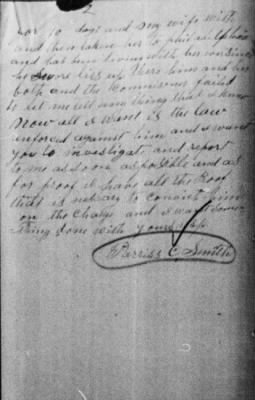 2
for 10 days and my wife with
and then taken her to
and has been living with his
he swore lies up there him and her
both and the Commisoners failed
to let me tell any thing that I know
now all I want is the law
enforced against him and I want
you to investigate and report
to me as soon as posible and as
for proof I have all the Proof
that is nessary to convict him
on the charge and I want some
thing done with yours resp
Parriss C. Smith